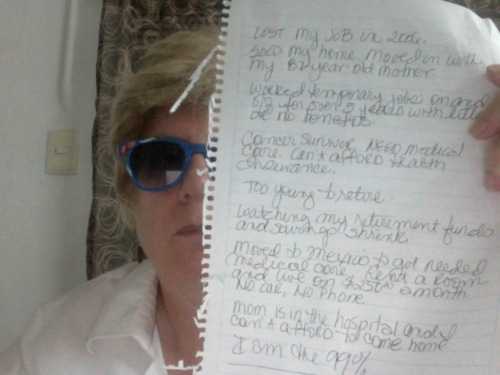 Lost my job in 2006.
Sold my home moved in with
my 82 year old mother.
Worked temporary jobs on and
off for over 5 years with little
or no benefits.
Cancer survivor. Need medical
care. Can't afford health
insurance.
Too young to retire.
Watching my retirement funds
and savings shrink.
Moved to Mexico to get needed
medical care. Rent a room
and live on $250 a month
No car, No phone
Mom is in the hospital and I
can't afford to come home
I am the 99%